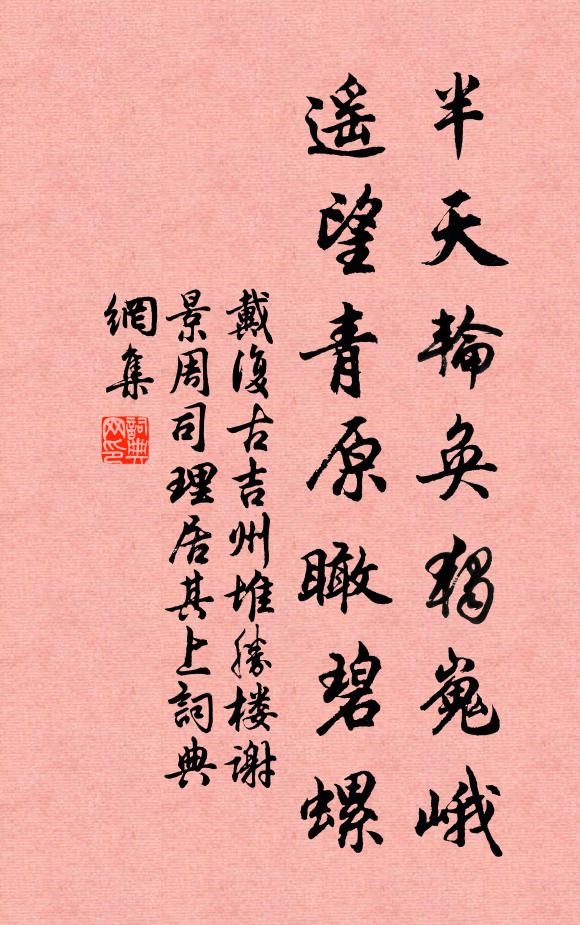 半天輪奐獨嵬峨
遥望青原瞰碧螺
戴復古吉州堆勝楼謝
景周司理居其上詞典
網集
詞典網印